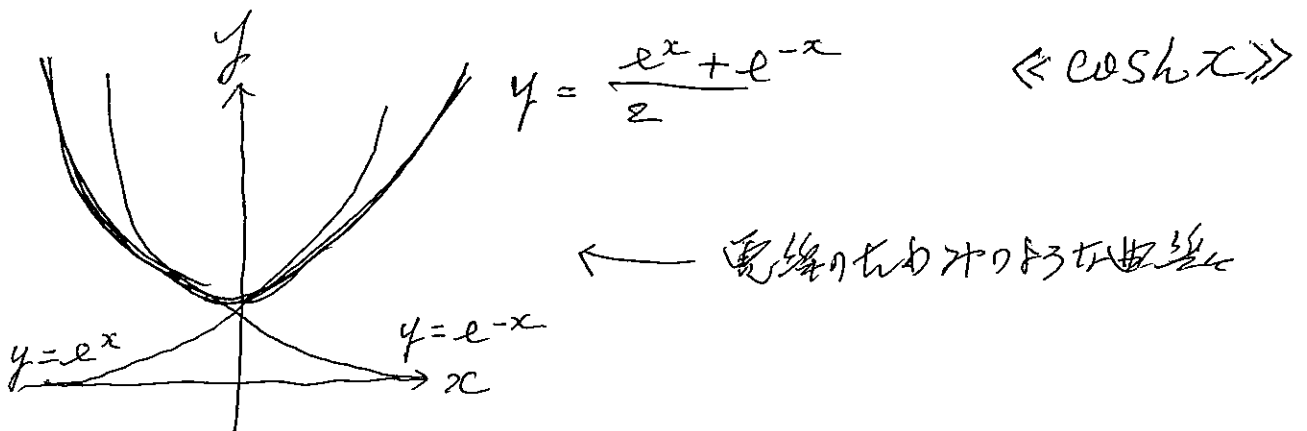 y
y = (e^x + e^-x)/2 ≪cosh x≫
← 電線のたわみのような曲線
y=e^x
y=e^-x
x